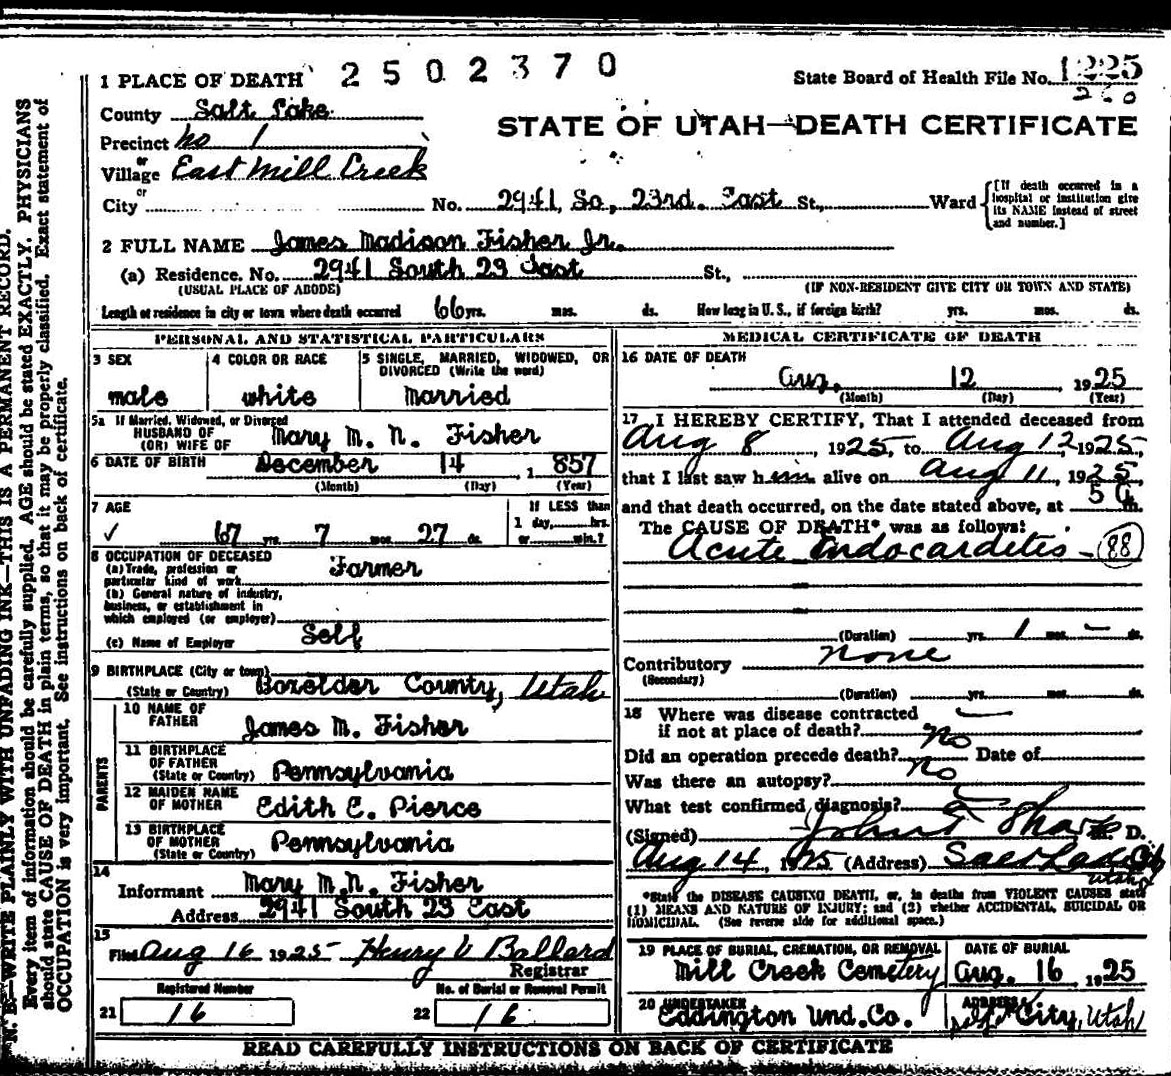 1 PLACE OF DEATH 2502370 State Board of Health File No. 1225
260
County Salt Lake
STATE OF UTAH—DEATH CERTIFICATE
Precinct No 1
or
Village East Mill Creek
or
City No. 2941, So, 23rd. East St., Ward [If death occurred in a hospital or institution give its NAME instead of street and number.]
2 FULL NAME James Madison Fisher Jr.
(a) Residence. No. 2941 South 23 East St.,
(USUAL PLACE OF ABODE) (IF NON-RESIDENT GIVE CITY OR TOWN AND STATE)
Length of residence in city or town where death occurred 66 yrs. mos. ds. How long in U.S., if foreign birth? yrs. mos. ds.
PERSONAL AND STATISTICAL PARTICULARS
3 SEX 4 COLOR OR RACE 5 SINGLE, MARRIED, WIDOWED, OR
DIVORCED (Write the word)
male white Married
5a If Married, Widowed, or Divorced
HUSBAND OF
(OR) WIFE OF Mary M. N. Fisher
6 DATE OF BIRTH December 14, 1857
(Month) (Day) (Year)
7 AGE If LESS than
1 day, hrs.
67 yrs. 7 mos. 27 ds. or min.?
8 OCCUPATION OF DECEASED
(a) Trade, profession or
particular kind of work Farmer
(b) General nature of industry,
business, or establishment in
which employed (or employer)
(c) Name of Employer Self
9 BIRTHPLACE (City or town)
(State or Country) Boxelder County, Utah
PARENTS
10 NAME OF
FATHER James M. Fisher
11 BIRTHPLACE
OF FATHER
(State or Country) Pennsylvania
12 MAIDEN NAME
OF MOTHER Edith E. Pierce
13 BIRTHPLACE
OF MOTHER
(State or Country) Pennsylvania
14
Informant Mary M.N. Fisher
Address 2941 South 23 East
15
Filed Aug 16 1925 Henry V Ballard
Registrar
Registered Number No. of Burial or Removal Permit
21 16 22 16
MEDICAL CERTIFICATE OF DEATH
16 DATE OF DEATH
Aug. 12, 1925
(Month) (Day) (Year)
17 I HEREBY CERTIFY, That I attended deceased from
Aug 8, 1925, to Aug 12, 1925,
that I last saw him alive on Aug 11, 1925,
and that death occurred, on the date stated above, at 5 m.
The CAUSE OF DEATH* was as follows:
Acute Endocarditis - 88
(Duration) yrs. 1 mos. — ds.
Contributory None
(Secondary)
(Duration) yrs. mos. ds.
18 Where was disease contracted
if not at place of death?
Did an operation precede death? No Date of
Was there an autopsy? No
What test confirmed diagnosis?
(Signed) John T Sharp M. D.
Aug 14, 1925 (Address) Salt Lake City
Utah
*State the DISEASE CAUSING DEATH, or, in deaths from VIOLENT CAUSES state
(1) MEANS AND NATURE OF INJURY; and (2) whether ACCIDENTAL, SUICIDAL OR
HOMICIDAL. (See reverse side for additional space.)
19 PLACE OF BURIAL, CREMATION, OR REMOVAL DATE OF BURIAL
Mill Creek Cemetery Aug. 16, 1925
20 UNDERTAKER ADDRESS
Eddington Und. Co. City, Utah
READ CAREFULLY INSTRUCTIONS ON BACK OF CERTIFICATE
N. B.—WRITE PLAINLY WITH UNFADING INK—THIS IS A PERMANENT RECORD.
Every item of information should be carefully supplied. AGE should be stated EXACTLY. PHYSICIANS
should state CAUSE OF DEATH in plain terms, so that it may be properly classified. Exact statement of
OCCUPATION is very important. See instructions on back of certificate.